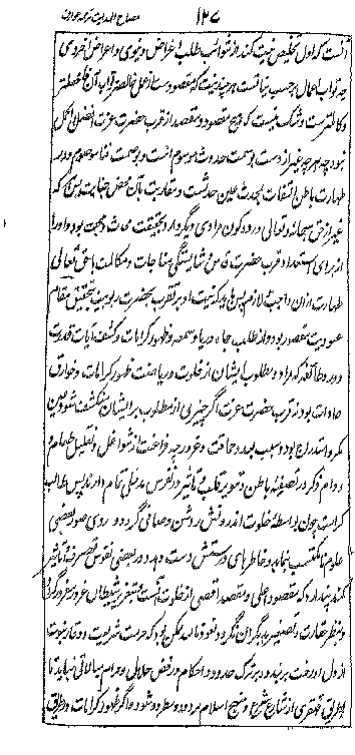 ۱۲۷ مصباح الهدایت ترجمه عوارف
آنست که اول تخلیص نیت کند از شوائب طلب اعراض دنیوی و اعراض اخروی
چه ثواب اعمال بر حسب نیات است هر چند نیت که مقصود
نبود چه هر چه غیر از وست بوسمت حدوث موسوم است و بوصمت فنا موصوم و در
طهارت باطن التفات بمحدث عین حدثست و مقاربت بآن محض جنابت پس آنکه
غیر از حق سبحانه و تعالی در دو کون مرادی دیگر دارد بحقیقت محدث و جنب بود و او را
از برای استعداد قرب حضرت قدس و شایستگی مناجات و مکالمت با حق تعالی
طهارت از آن واجب و لازم پس باید که نیت او بر تقرب بحضرت ربوبیت و تحقیق مقام
عبودیت مقصور بود و از طلب جاه و ریا و سمعه و ظهور کرامات و کشف آیات قدرت
دور و طائفه که مراد و مطلوب ایشان از خلوت و ریاضت ظهور کرامات و خوارق
عادات بود نه قرب حضرت عزت اگر چیزی از مطلوب بر ایشان منکشف شود عین
مکر و استدراج بود و سبب بعد و حماقت و غرور چه فراغت از شواغل و تقلیل طعام و
دوام ذکر در تصفیه باطن و تنویر قلب و تاثیر در نفوس مدخلی تمام دارند پس طالب
کرامت چون بواسطه خلوت اندرونش روشن و صافی گردد و روی صور بعضی
علوم نامکتسب بنماید و خاطر های راستش دست دهد و در بعضی نفوس تصرف و تاثیر
کند پندارد که مقصود اعلی و مقصد اقصی از خلوت آنست و بتغریر شیطان غرور مغرور گردد
و بنظر حقارت و تصغیر بدیگران نگرد و نعوذ بالله ممکن بود که حرمت شریعت و وقار نبوت
از دل او رخت بر بندد و بر ترک حدود و احکام و رفض حلال و حرام مبالاتی ننماید تا
بطریق قهقری از شارع شرع و منهج اسلام مردود و مطرود شود و اگر ظهور کرامات و خوارق